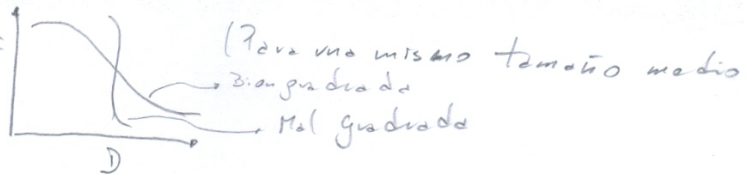 (Para una mismo tamaño medio
Bien gradada
Mal gradada
D